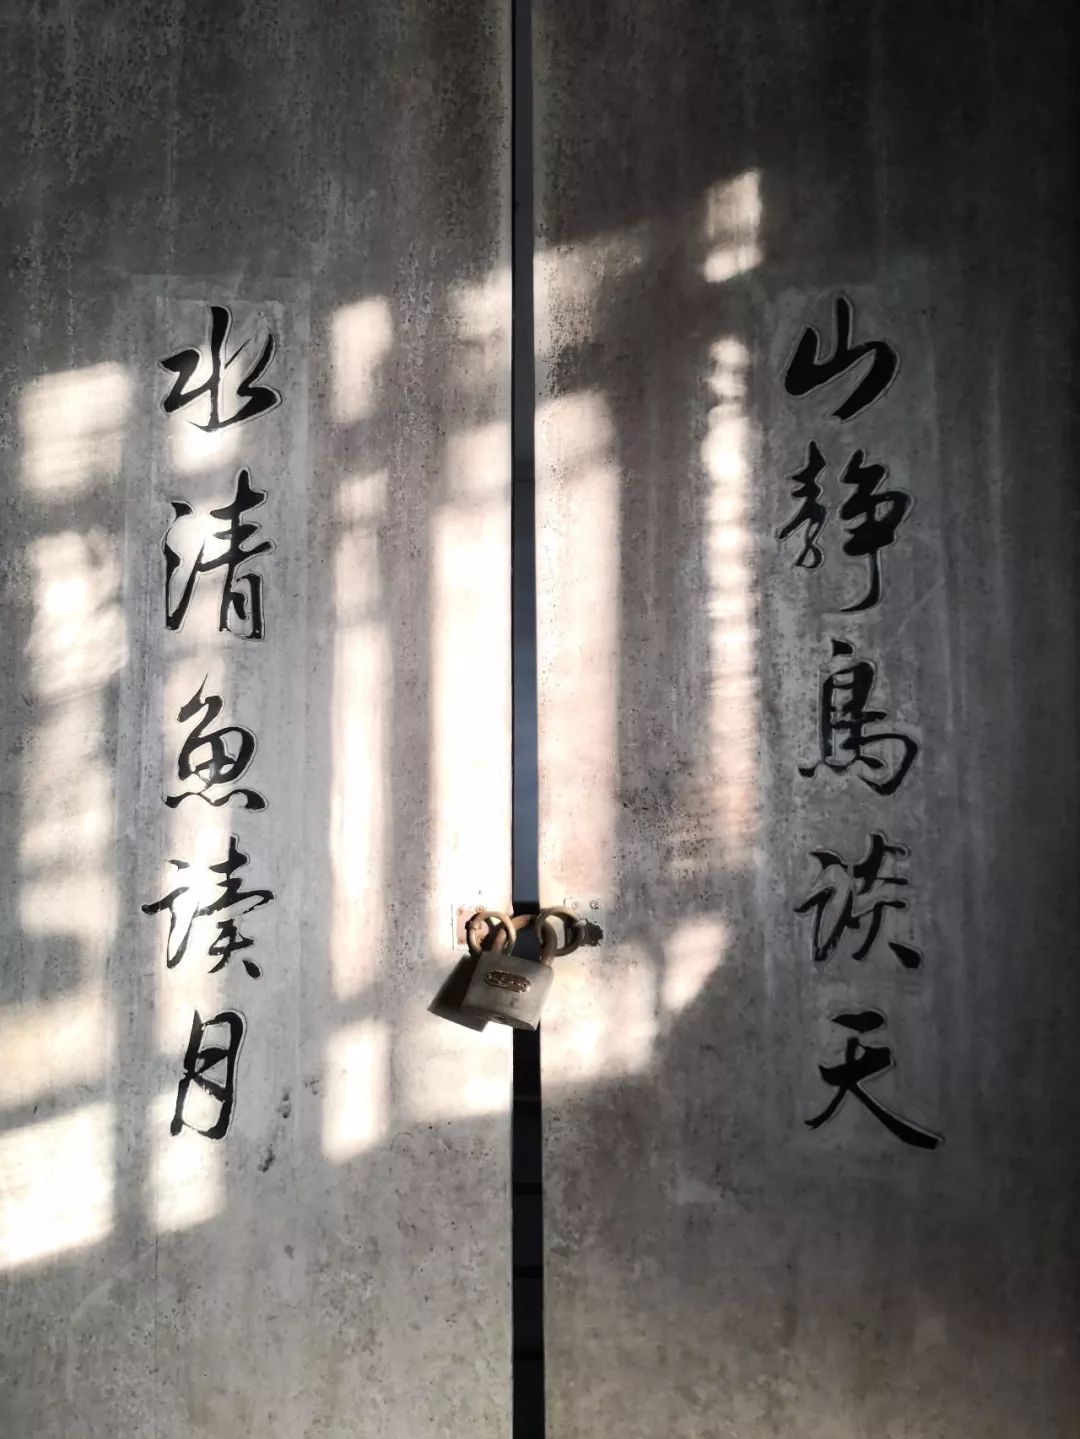 山静鳥谈天
水清魚读月